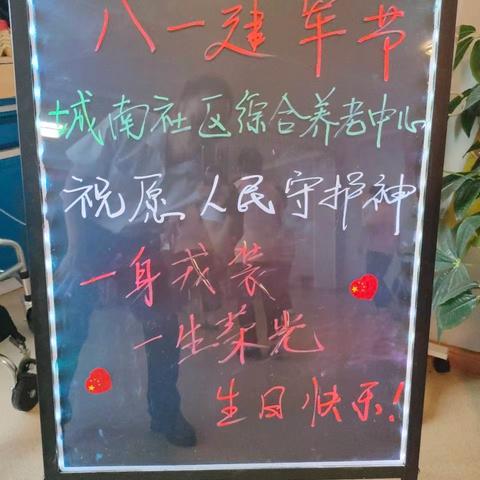 八一建军节
城南社区综合养老中心
祝愿人民守护神
一身戎装
一生荣光
生日快乐!